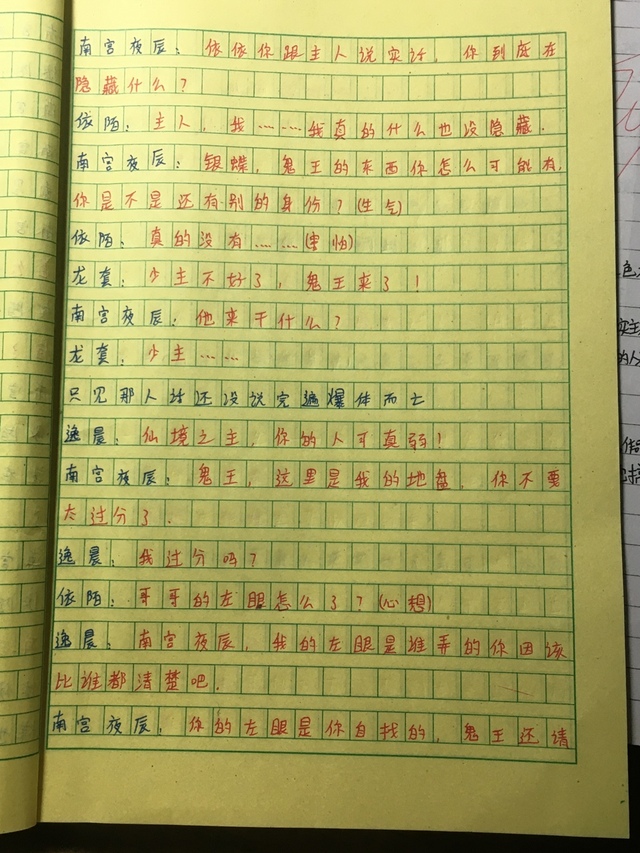 南宫夜辰：依依你跟主人说实话，你到底在
隐藏什么？
依陌：主人，我……我真的什么也没隐藏.
南宫夜辰：银蝶，鬼王的东西你怎么可能有,
你是不是还有别的身份？(生气)
依陌：真的没有……(害怕)
龙套：少主不好了，鬼王来了！
南宫夜辰：他来干什么？
龙套：少主……
只见那人话还没说完遍爆体而亡
逸晨：仙境之主，你的人可真弱！
南宫夜辰：鬼王，这里是我的地盘，你不要
太过分了.
逸晨：我过分吗？
依陌：哥哥的左眼怎么了？(心想)
逸晨：南宫夜辰，我的左眼是谁弄的你因该
比谁都清楚吧.
南宫夜辰：你的左眼是你自找的，鬼王还请
色
实主
的人